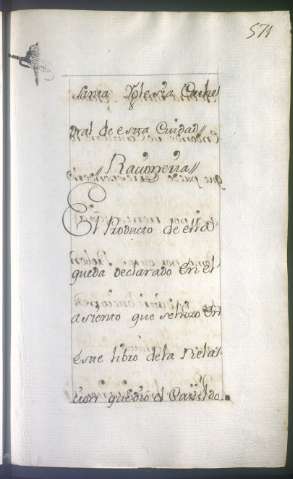 571
Santa Yglesia Cathe
ral de esta Ciudad
Razioneria
El Producto de esta
queda declarado en el
asiento que se hizo en
este libro de la Rela
cion que dio el Cavildo.